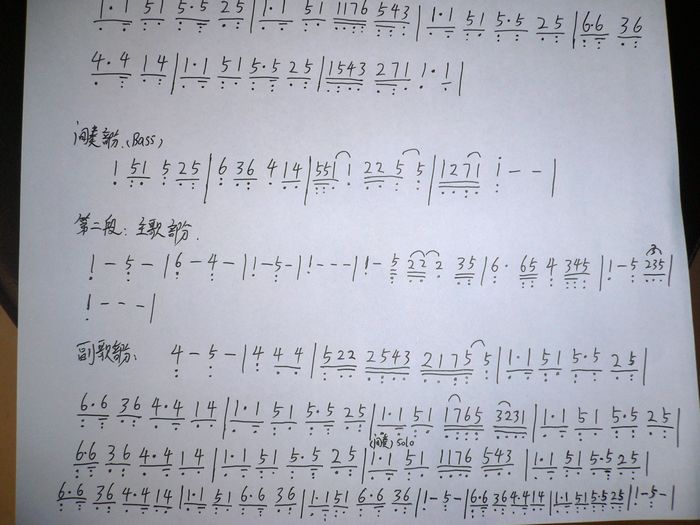 1·1 51 5·5 25|1·1 51 1176 543|1·1 51 5·5 25|6·6 36
4·4 14|1·1 51 5·5 25|1543 271 1·1|
间奏部分.(Bass)
1 51 5 25|6 36 4 14|551 1 22 5 5|1271 i--|
第二段:主歌部分.
1-5-|6-4-|1-5-|1---|1-5 22 2 35|6· 65 4 345|1-5 235|
1---|
副歌部分: 4-5-|4 4 4|522 2543 2175 5|1·1 51 5·5 25|
6·6 36 4·4 14|1·1 51 5·5 25|1·1 51 1765 3231|1·1 51 5·5 25|
(间奏) solo
6·6 36 4·4 14|1·1 51 5·5 25|1·1 51 1176 543|1·1 51 5·5 25|
6·6 36 4·4 14|1·1 51 6·6 36|1·1 51 6·6 36|1-5-|6·6 36 4·4 14|1·1 51 5·5 25|1-5-|